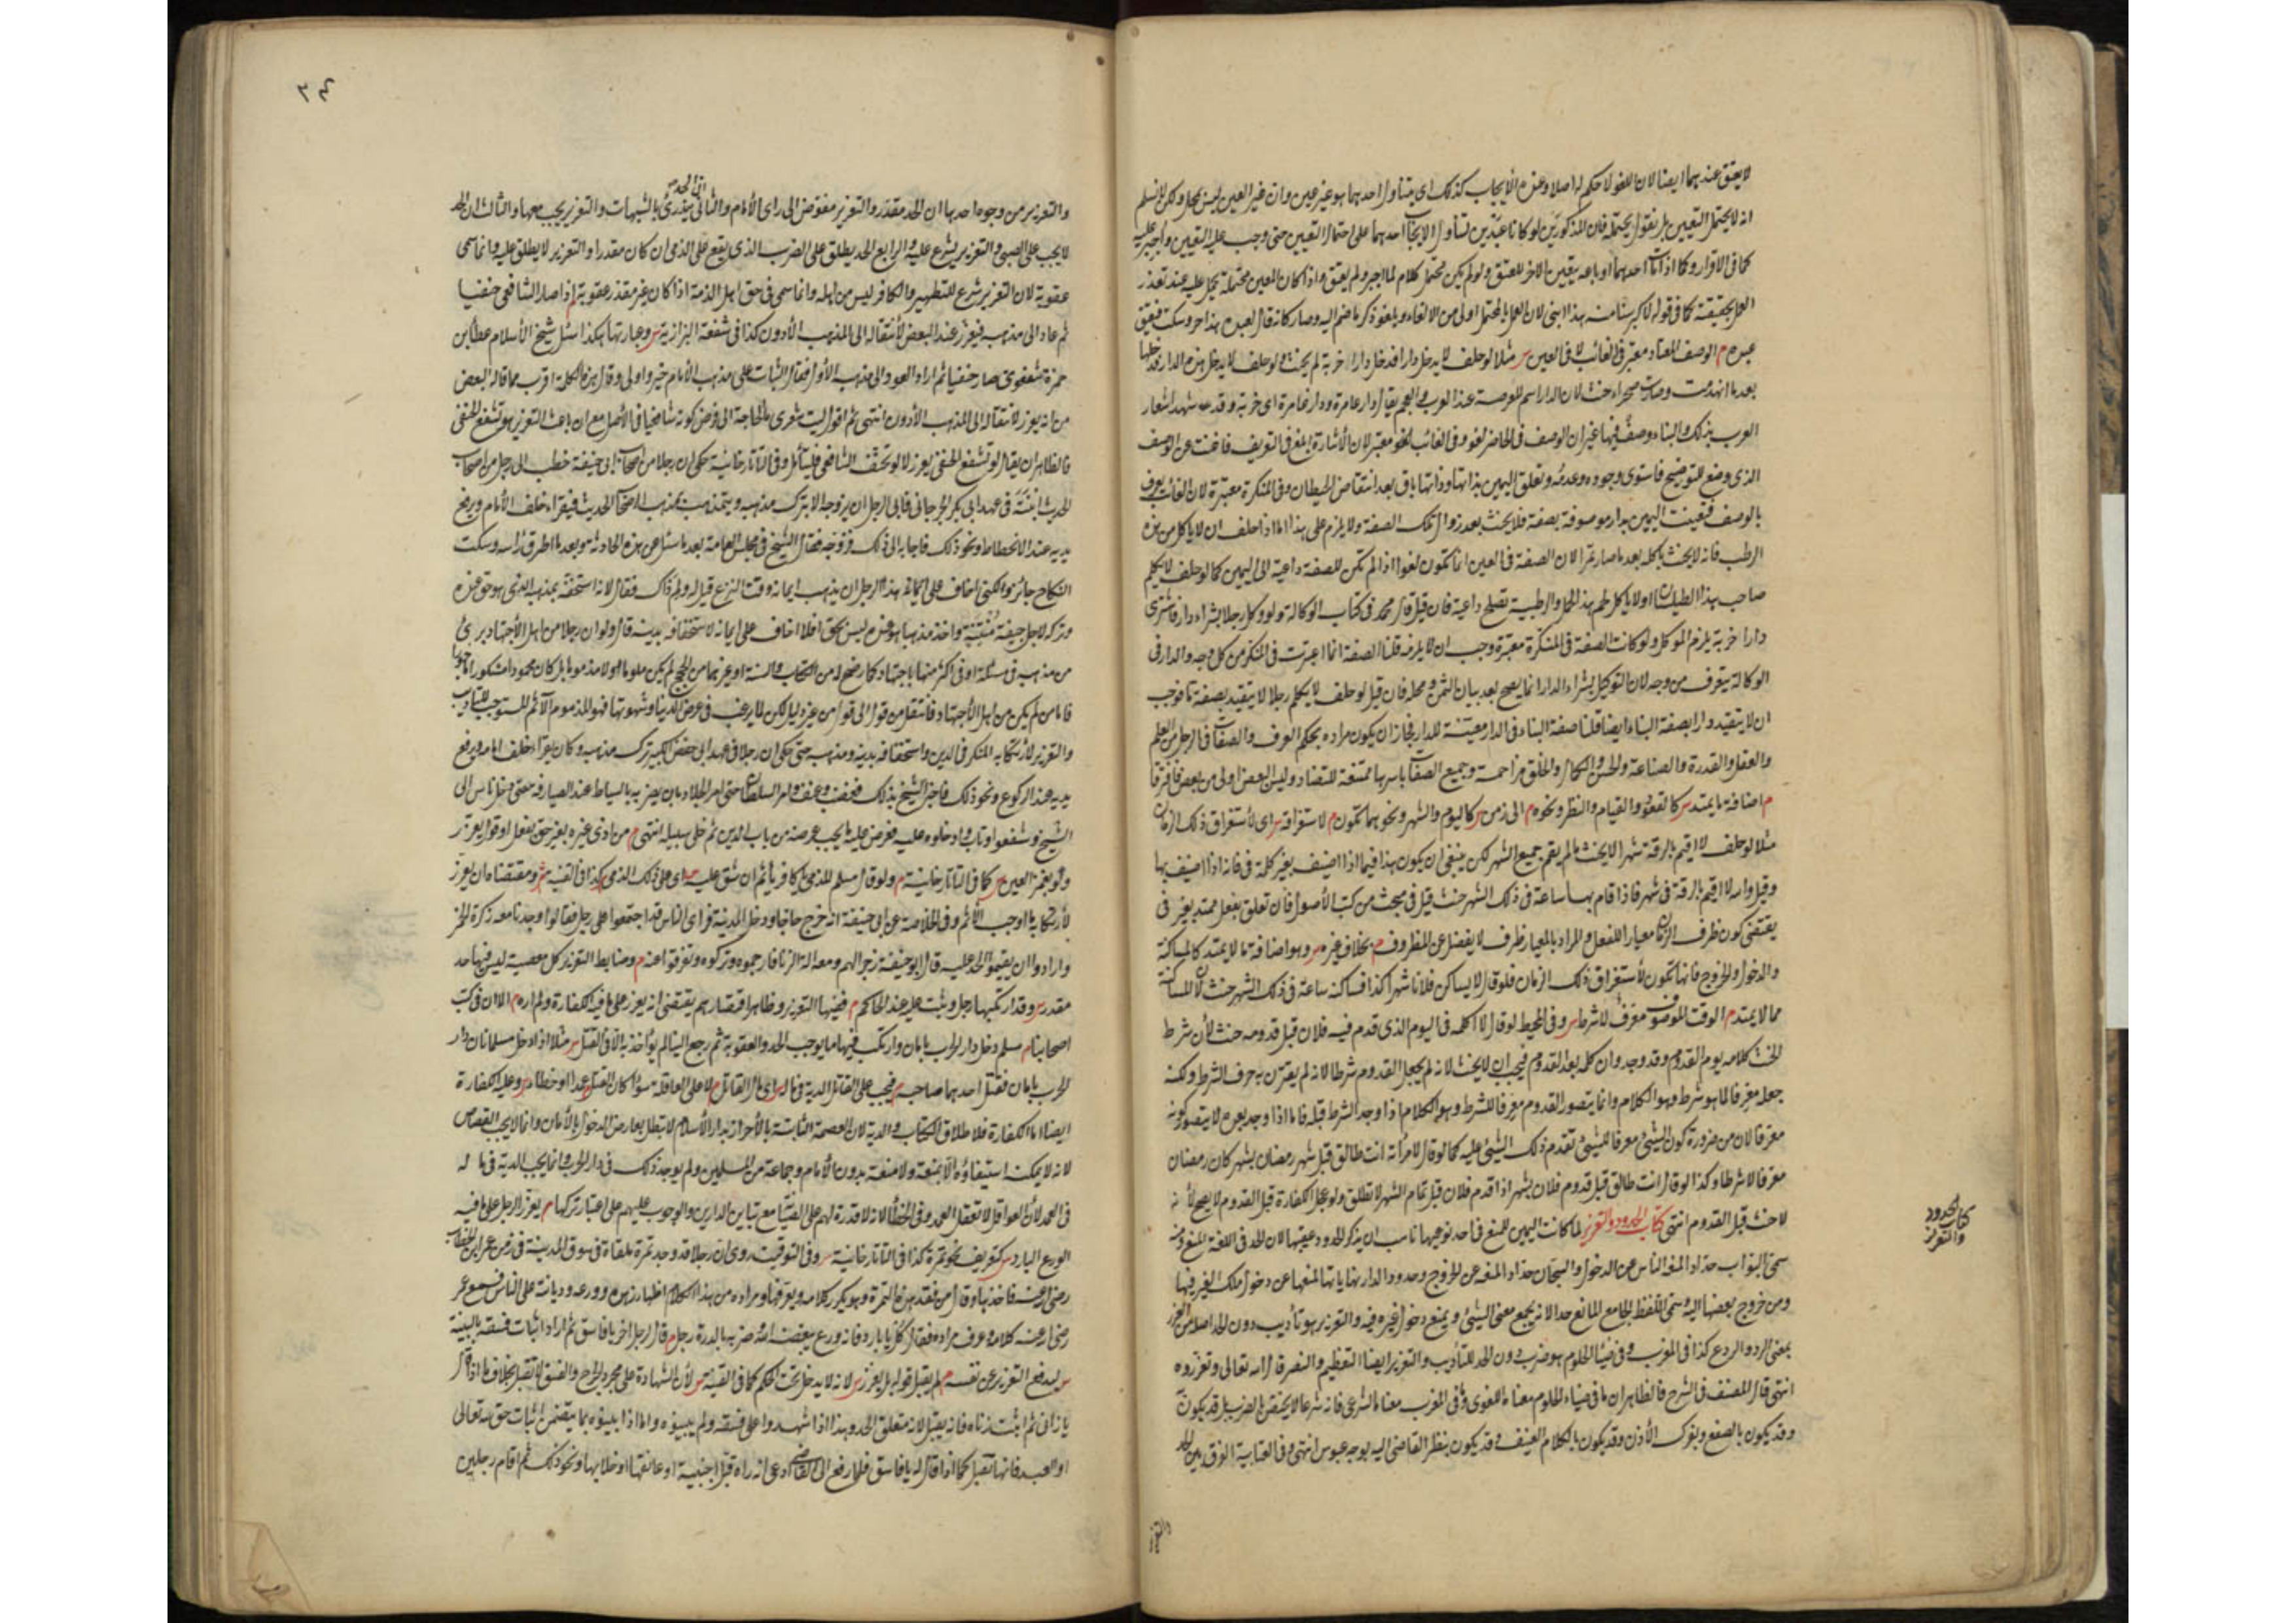 لا يعتق عندهما ايضا لان اللغو لا حكم له اصلا وعنده الايجاب كذلك اى يتناول احدهما هو غير عين وان غير العين ليس بمحل ولكن لا نسلم
انه لا يحتمل التعيين بل نقول يحتمله فان المذكورين لو كانا عبدين تناول الايجاب احدهما على احتمال التعيين حتى وجب عليه التعيين واجبر عليه
كما فى الاقرار وكذا اذا مات احدهما او باعه يتعين الاخر للعتق ولو لم يكن محتمل كلام لما اجبر ولم يعتق واذا كان المعين محتمله يحمل عليه عند تعذر
العمل بحقيقته كما فى قوله لاكبر سنا منه هذا ابنى لان العمل بالمحتمل اولى من الالغاء ويلغو ذكر ما ضم اليه وصار كانه قال لعبده هذا حر وسكت فيعتق
عبده م الوصف المعتاد معتبر فى الغائب لا فى العين س مثلا لو حلف لا يدخل دارا فدخل دارا خربة لم يحنث ولو حلف لا يدخل هذه الدار فدخلها
بعد ما انهدمت وصارت صحراء حنث لان الدار اسم للعرصة عند العرب والعجم يقال دار عامرة ودار غامرة اى خربة وقد شهد اشعار
العرب بذلك والبناء وصف فيها غير ان الوصف فى الحاضر لغو وفى الغائب معتبر لان الاشارة ابلغ فى التعريف فاغنت عن الوصف
الذى وضع للتوضيح فاستوى وجوده وعدمه وتعلق اليمين بذاتها وذاتها باق بعد انتقاض الحيطان وفى المنكرة معتبرة لان الغائب يعرف
بالوصف فتعينت اليمين بدار موصوفة بصفة فلا يحنث بعد زوال تلك الصفة ولا يلزم على هذا ما اذا حلف ان لا ياكل من هذه
الرطب فانه لا يحنث باكله بعد ما صار تمرا لان الصفة فى العين انما تكون لغوا اذا لم تكن للصفة داعية الى اليمين كما لو حلف لا يكلم
صاحب هذا الطيلسان او لا ياكل لحم هذا الحمل والرطبية تصلح داعية فان قيل قال محمد فى كتاب الوكالة ولو وكل رجلا بشراء دار فاشترى
دارا خربة يلزم الموكل ولو كانت الصفة فى المنكرة معتبرة وجب ان لا يلزمه قلنا الصفة انما اعتبرت فى المنكر من كل وجه والدار فى
الوكالة يتعرف من وجه لان التوكيل بشراء الدار انما يصح بعد بيان الثمن ومحله فان قيل لو حلف لا يكلم رجلا لا يتقيد بصفة ما فوجب
ان لا يتقيد دارا بصفة البناء ايضا قلنا صفة البناء فى الدار معينة للدار فجاز ان يكون مراده بحكم العرف والصفات فى الرجل من العلم
والعقل والقدرة والصناعة والحسن والكمال والخلق مزاحمة وجميع الصفات باسرها ممتنعة للتضاد وليس البعض اولى من بعض فافترقا
م اضافة ما يمتد س كالقعود والقيام والنظر ونحوه م الى زمن س كاليوم والشهر ونحوهما تكون م لاستغراقه س اى لاستغراق ذلك الزمان
مثلا لو حلف لا اقيم بالرقة شهرا لا يحنث ما لم يقم جميع الشهر لكن ينبغى ان يكون هذا فيما اذا اضيف بغير كلمة فى فانه اذا اضيف بها
وقيل والله لا اقيم بالرقة فى شهر فاذا قام بها ساعة فى ذلك الشهر حنث قيل فى مبحث من كتب الاصول فان تعلق بفعل ممتد بغير فى
يقتضى كون ظرف الزمان معيارا للفعل والمراد بالمعيار ظرف لا يفضل عن المظروف م بخلاف غيره س وهو اضافة ما لا يمتد كالمساكنة
والدخول والخروج فانها تكون لاستغراق ذلك الزمان فلو قال لا يساكن فلانا شهر كذا فساكنه ساعة فى ذلك الشهر حنث لان المساكنة
مما لا يمتد م الوقت الموصوف معرف لا شرط س وفى المحيط لو قال لا اكلمه فى اليوم الذى قدم فيه فلان قبل قدومه حنث لان شرط
الحنث كلامه يوم القدوم وقد وجد وان كلمه بعد القدوم فيجب ان لا يحنث لانه لم يجعل القدوم شرطا لانه لم يقترن به حرف الشرط ولكنه
جعله معرفا لما هو شرط وهو الكلام وانما يتصور القدوم معرفا للشرط وهو الكلام اذا وجد الشرط قبله فاما اذا وجد بعده لا يتصور كونه
معرفا لان من ضرورة كون الشيئ معرفا للشيئ تقدم ذلك الشيئ عليه كما لو قال لامرأته انت طالق قبل شهر رمضان بشهر كان رمضان
معرفا لا شرطا وكذا لو قال انت طالق قبل قدوم فلان بشهر اذا قدم فلان قبل تمام الشهر لا تطلق ولو عجل الكفارة قبل القدوم لا يصح لانه
لا حنث قبل القدوم انتهى كتاب الحدود والتعزير لما كانت اليمين للمنع فى احد نوعيها ناسب ان يذكر الحدود عقيبها لان الحد فى اللغة المنع ومنه
سمى البواب حدادا لمنعه الناس عن الدخول والسجان حدادا لمنعه عن الخروج وحدود الدار نهاياتها لمنعها عن دخول ملك الغير فيها
ومن خروج بعضها اليه وسمى اللفظ الجامع المانع حدا لانه يجمع معنى الشيئ ويمنع دخول غيره فيه والتعزير هو تأديب دون الحد اصله من العزر
بمعنى الرد والردع كذا فى المغرب وفى ضياء الحلوم هو ضرب دون الحد للتأديب والتعزير ايضا التعظيم والنصر قال الله تعالى وتعزروه
انتهى قال المصنف فى الشرح فالظاهر ان ما فى ضياء الحلوم معناه اللغوى وفى المغرب معناه الشرعى فانه شرعا لا يختص بالضرب بل قد يكون به
وقد يكون بالصفع وبعرك الأذن وقد يكون بالكلام العنيف وقد يكون بنظر القاضى اليه بوجه عبوس انتهى وفى العتابية الفرق بين الحد
كتاب الحدود
والتعزير
والتعزير
٣٤
والتعزير من وجوه احدها ان الحد مقدر والتعزير مفوض الى راى الامام والثانى ان الحد يندرئ بالشبهات والتعزير يجب معها والثالث ان الحد
لا يجب على الصبى والتعزير يشرع عليه والرابع الحد يطلق على الضرب الذى يقع على الذمى ان كان مقدرا والتعزير لا يطلق عليه وانما سمى
عقوبة لان التعزير شرع للتطهير والكافر ليس من اهله وانما سمى فى حق اهل الذمة اذا كان غير مقدر عقوبة م اذا صار الشافعى حنفيا
ثم عاد الى مذهبه فيعزر عند البعض لانتقاله الى المذهب الأدون كذا فى شفعة البزازية س وعبارتها هكذا سئل شيخ الاسلام عطا بن
حمزة شفعوى صار حنفيا ثم اراد العود الى مذهبه الأول فقال الثبات على مذهب الامام خير واولى وقال هذه الكلمة اقرب مما قاله البعض
من انه يعزر لانتقاله الى المذهب الأدون انتهى ثم اقول ليت شعرى ما الحاجة الى فرض كونه شافعيا فى الأصل مع ان باعث التعزير هو تشفع الحنفى
فالظاهر ان يقال لو تشفع الحنفى يعزر لا لو تحنف الشافعى فليتأمل وفى التاتارخانية حكى ان رجلا من اصحاب ابى حنيفة خطب الى رجل من اصحاب
الحديث ابنته فى عهد ابى بكر الجرجانى فابى الرجل ان يزوجه الا بترك مذهبه ويتمذهب بمذهب اصحاب الحديث فيقراء خلف الامام ويرفع
يديه عند الانحطاط ونحو ذلك فاجابه الى ذلك فزوجه فقال الشيخ فى مجلس العامة بعد ما سئل عن هذه الحادثة وبعد ما اطرق راسه وسكت
النكاح جائز ولكنى اخاف على ايمان هذا الرجل ان يذهب ايمانه وقت النزع قيل له ولم ذاك فقال لانه استخف بمذهبه الذى هو حق عنده
وتركه لاجل جيفة منتنة واخذ مذهبا هو عنده ليس بحق افلا اخاف على ايمانه لاستخفافه بدينه قال ولو ان رجلا من اهل الاجتهاد برئ
من مذهبه فى مسئلة او فى اكثر منها باجتهاد كما وضح له من الكتاب والسنة او غيرهما من الحجج لم يكن ملوما ولا مذموما بل كان محمودا مشكورا مأجورا
فاما من لم يكن من اهل الاجتهاد فانتقل من قول الى قول من غير دليل لكن لما يرغب فى عرض الدنيا وشهوتها فهو المذموم الآثم المستوجب للتأديب
والتعزير لارتكابه المنكر فى الدين واستخفافه بدينه ومذهبه حتى حكى ان رجلا فى عهد ابى حفص الكبير ترك مذهبه وكان يقراء خلف الامام ويرفع
يديه عند الركوع ونحو ذلك فاخبر الشيخ بذلك فغضب وعنف وامر السلطان حتى امر الجلاد بان يضربه بالسياط عند الصيارفة حتى دخل ناس الى
الشيخ وشفعوا وتاب وادخلوه عليه فعرض عليه ما يجب عرضه من باب الدين ثم خلى سبيله انتهى م من اذى غيره بغير حق بفعل او قول يعزر
ولو بغمز العين س كما فى التاتارخانية م ولو قال مسلم للذمى يا كافر يأثم ان شق عليه س اى على ذلك الذمى كذا فى القنية م ومقتضاه ان يعزر
لارتكابه ما اوجب الاثم وفى الخلاصة عن ابى حنيفة انه خرج حاجا ودخل المدينة فراى الناس قد اجتمعوا على رجل فقالوا وجدنا معه زكرة الخمر
وارادوا ان يقيموا الحد عليه قال ابو حنيفة زجرا لهم ومعه آلة الزنا فارجموه وتركوه وتفرقوا عنه م وضابط التعزير كل معصية ليس فيها حد
مقدر س وقد ارتكبها رجل وثبت عليه عند الحاكم م ففيها التعزير وظاهر اقتصارهم يقتضى انه يعزر على ما فيه الكفارة ولم اره م الا ان فى كتب
اصحابنا م مسلم دخل دار الحرب بامان وارتكب فيها ما يوجب الحد والعقوبة ثم رجع الينا لم يؤاخذ به الا فى القتل س مثلا اذا دخل مسلمان دار
الحرب بامان فقتل احدهما صاحبه م فيجب على القاتل الدية فى ماله س اى مال القاتل م لا على العاقلة سواء كان القتل عمدا او خطاء م وعليه الكفارة
ايضا اما الكفارة فلاطلاق الكتاب والدية لان العصمة الثابتة بالأحراز بدار الأسلام لا تبطل بعارض الدخول بالأمان وانما لا يجب القصاص
لانه لا يمكنه استيفاؤه الا بمنعة ولا منعة بدون الأمام وجماعة من المسلمين ولم يوجد ذلك فى دار الحرب وانما يجب الدية فى ماله
فى العمد لأن العواقل لا تعقل العمد وفى الخطأ لانه لا قدرة لهم على الصيانة مع تباين الدارين والوجوب عليهم على اعتبار تركها م يعزر الرجل على ما فيه
الورع البارد س كتعريف نحو تمرة كذا فى التاتارخانية س وفى التوقيت روى ان رجلا قد وجد تمرة ملقاة فى سوق المدينة فى زمن عمر ابن الخطاب
رضى الله عنه فاخذها وقال من فقد هذه التمرة وهو يكرر كلامه ويعرفها ومراده من هذا الكلام اظهار زهده وورعه وديانته على الناس فسمع عمر
رضى الله عنه كلامه وعرف مراده فقال كل يا بارد فانه ورع يبغضه الله وضربه بالدرة رجل م قال لرجل اخر يا فاسق ثم اراد اثبات فسقه بالبينة
س ليدفع التعزير عن نفسه م لم يقبل قوله بل يعزر س لانه لا يدخل تحت الحكم كما فى القنية س لأن الشهادة على مجرد الجرح والفسق لا تقبل بخلاف ما اذا قال
يا زانى ثم اثبت زناه فانه يقبل لانه متعلق الحد وهذا اذا شهدوا على فسقه ولم يبينوه واما اذا بينوه بما يتضمن اثبات حق لله تعالى
او العبد فانها تقبل كما اذا قال له يا فاسق فلما رفع الى القاضى ادعى انه راه قبل اجنبية او عانقها او خلا بها ونحو ذلك ثم اقام رجلين